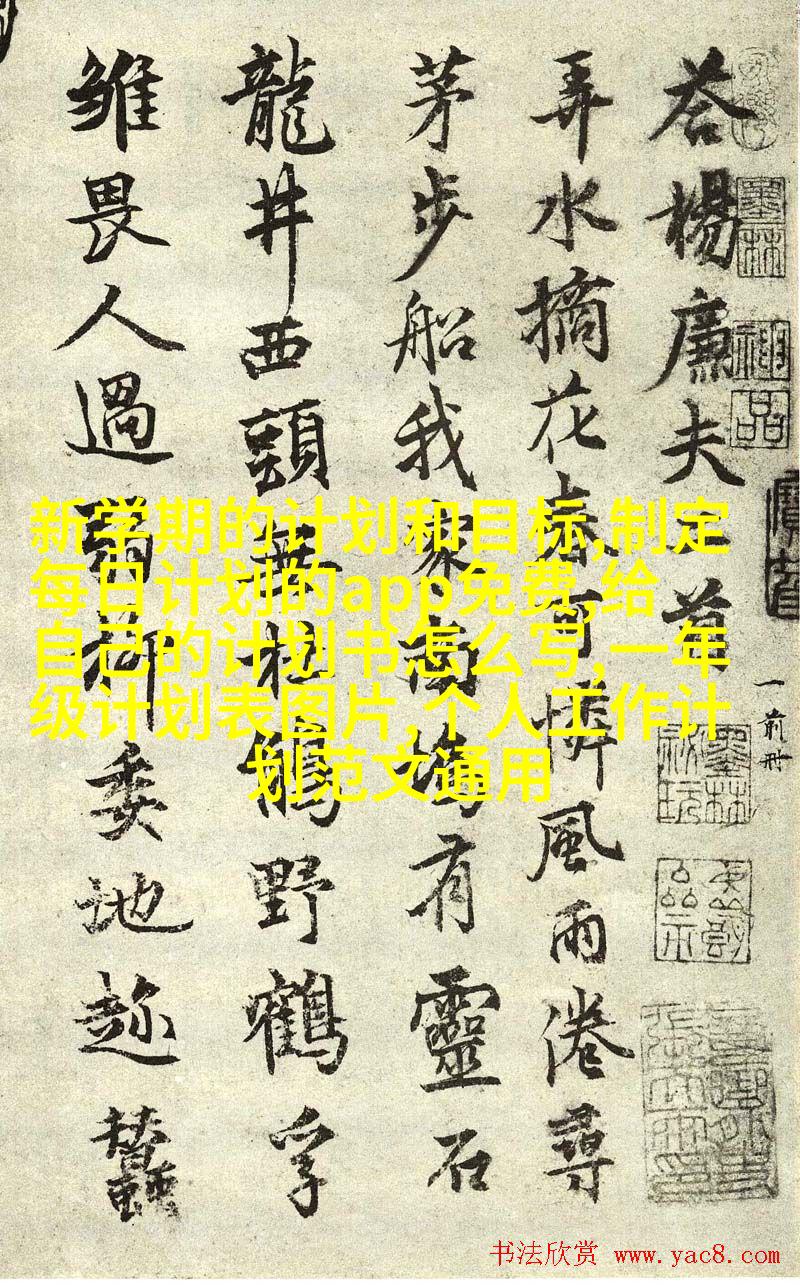 荅楊廉夫首
弄水摘花春可憐風雨倦尋
茅步船我家南有靈石
龍井西頭野鶴孚
雛畏人過柳委地趂蠶
新学期的计划和目标,制定
每日计划的app免费,给
自己的计划书怎么写,一年
级计划表图片,个人工作计
划范文通用
书法欣赏 www.yac8.com